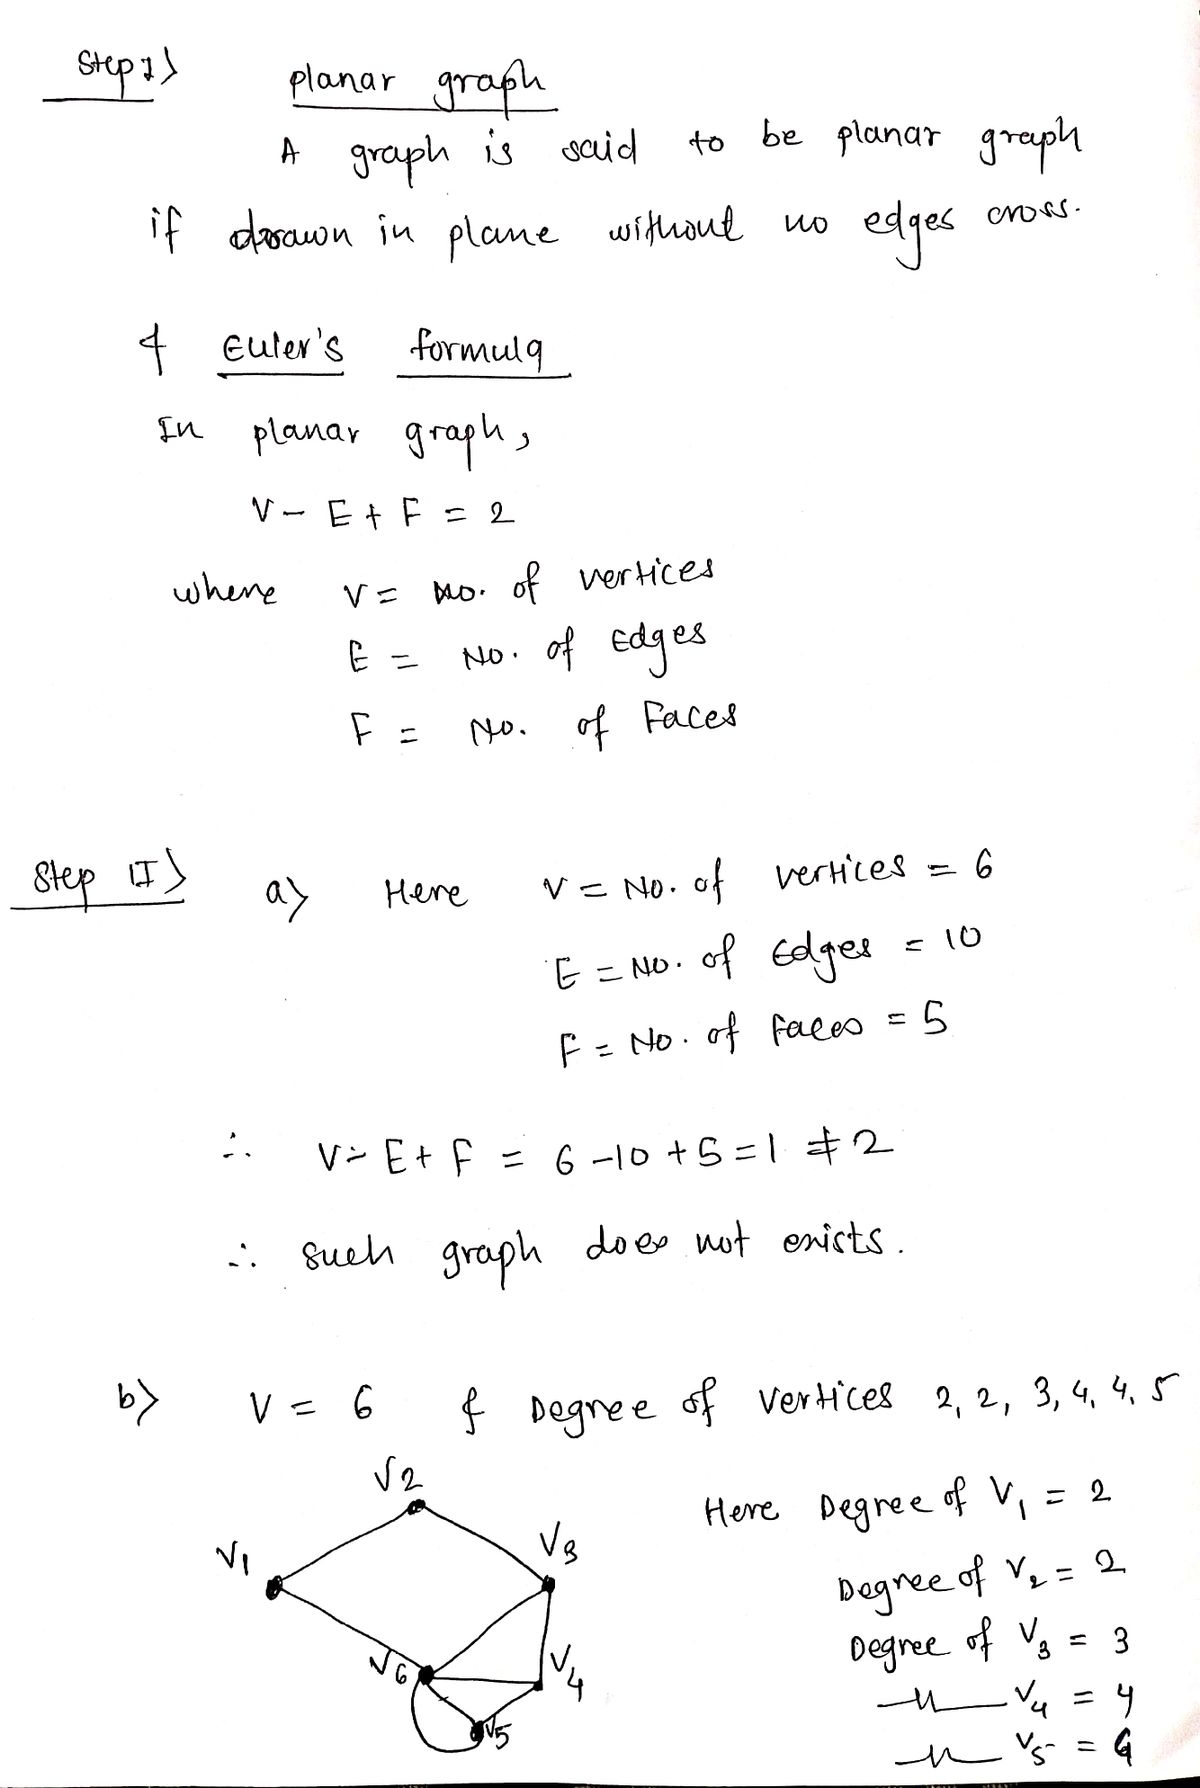 Step I)
planar graph
A graph is said to be planar graph
if drawn in plane without no edges cross.
& Euler's formula
In planar graph,
V - E + F = 2
where V = No. of vertices
E = No. of Edges
F = No. of Faces
Step II) a) Here V = No. of vertices = 6
E = No. of Edges = 10
F = No. of faces = 5
∴ V - E + F = 6 - 10 + 5 = 1 ≠ 2
∴ such graph does not exists.
b) V = 6 & Degree of vertices 2, 2, 3, 4, 4, 5
V2
V1
V3
V6
V4
V5
Here Degree of V1 = 2
Degree of V2 = 2
Degree of V3 = 3
V4 = 4
V5 =